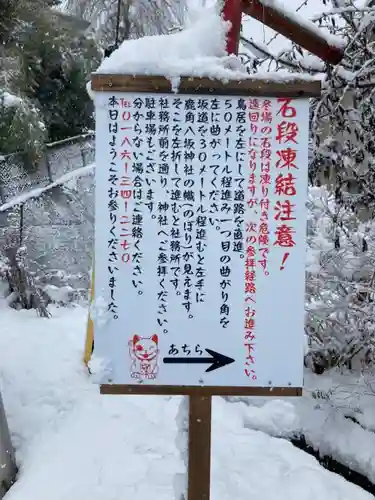 石段凍結注意！
冬場の石段は凍り付き危険です。
遠回りになりますが、次の参拝経路へお進み下さい。
鳥居を左にし、道路を直進。
５０メートル程進み一つ目の曲がり角を
左に曲がってください。
坂道を３０メートル程進むと左手に
鹿角八坂神社の幟(のぼり)が見えます。
そこを左折して進むと社務所です。
社務所前を通り、神社へご参拝ください。
駐車場もございます。
分からない場合はご連絡ください。
℡０１８６-３４-２２７０
本日はようこそお参りくださいました。
あちら